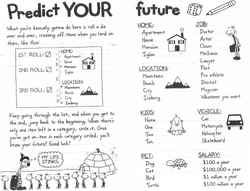 Predict YOUR future
What you're basically gonna do here is roll a die
over and over, crossing off items when you land on
them, like this:
1ST ROLL:
2ND ROLL:
3RD ROLL:
HOME:
Apartment
House
Mansion
Igloo
LOCATION:
Mountains
Beach
City
Iceberg
Keep going through the list, and when you get to
the end, jump back to the beginning. When there's
only one item left in a category, circle it. Once
you've got an item in each category circled, you'll
know your future! Good luck!
MY LIFE
STINKS.
HOME:
Apartment
House
Mansion
Igloo
JOB:
Doctor
Actor
Clown
Mechanic
Lawyer
Pilot
Pro athlete
Dentist
Magician
Whatever you want
LOCATION:
Mountains
Beach
City
Iceberg
KIDS:
None
One
Two
Ten
VEHICLE:
Car
Motorcycle
Helicopter
Skateboard
PET:
Dog
Cat
Bird
Turtle
SALARY:
$100 a year
$100,000 a year
$1 million a year
$100 million a year